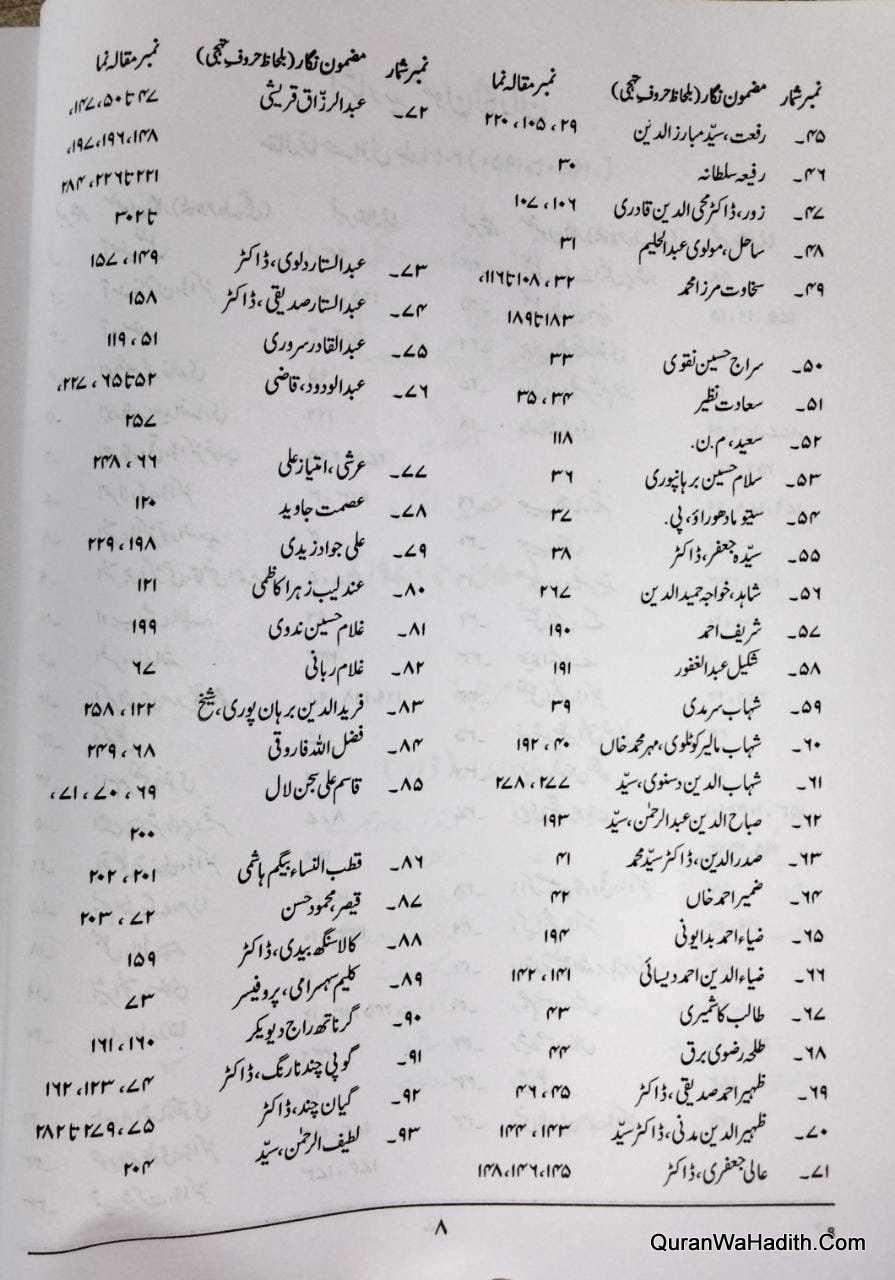 نمبر شمار مضمون نگار (بلحاظ حروفِ تہجی) نمبر مقالہ نما
۴۵۔ رفعت، سیّد مبارز الدین ۲۹، ۱۰۵، ۲۲۰
۴۶۔ رفیعہ سلطانہ ۳۰
۴۷۔ زور، ڈاکٹر محی الدین قادری ۱۰۶، ۱۰۷
۴۸۔ ساحل، مولوی عبدالحلیم ۳۱
۴۹۔ سخاوت مرزا محمد ۳۲، ۱۰۸ تا ۱۱۶،
۱۸۳ تا ۱۸۹
۵۰۔ سراج حسین نقوی ۳۳
۵۱۔ سعادت نظیر ۳۴، ۳۵
۵۲۔ سعید، م.ن. ۱۱۸
۵۳۔ سلام حسین برہانپوری ۳۶
۵۴۔ سیتو مادھو راؤ، پی. ۳۷
۵۵۔ سیّدہ جعفر، ڈاکٹر ۳۸
۵۶۔ شاہد، خواجہ حمید الدین ۲۶۷
۵۷۔ شریف احمد ۱۹۰
۵۸۔ شکیل عبدالغفور ۱۹۱
۵۹۔ شہاب سرمدی ۳۹
۶۰۔ شہاب مالیر کوٹلوی، مہر محمد خاں ۴۰، ۱۹۲
۶۱۔ شہاب الدین دسنوی، سیّد ۲۷۷، ۲۷۸
۶۲۔ صباح الدین عبدالرحمٰن، سیّد ۱۹۳
۶۳۔ صدرالدین، ڈاکٹر سیّد محمد ۴۱
۶۴۔ ضمیر احمد خاں ۴۲
۶۵۔ ضیاء احمد بدایونی ۱۹۴
۶۶۔ ضیاء الدین احمد دیسائی ۱۴۱، ۱۴۲
۶۷۔ طالب کاشمیری ۴۳
۶۸۔ طلحہ رضوی برق ۴۴
۶۹۔ ظہیر احمد صدیقی، ڈاکٹر ۴۵، ۴۶
۷۰۔ ظہیر الدین مدنی، ڈاکٹر سیّد ۱۴۳، ۱۴۴
۷۱۔ عالی جعفری، ڈاکٹر ۱۴۵، ۱۴۶، ۱۴۸
نمبر شمار مضمون نگار (بلحاظ حروفِ تہجی) نمبر مقالہ نما
۷۲۔ عبدالرزّاق قریشی ۴۷ تا ۵۰، ۱۴۷،
۱۴۸، ۱۹۶، ۱۹۷،
۲۲۱ تا ۲۲۶، ۲۸۴
تا ۳۰۲
۷۳۔ عبدالستار دلوی، ڈاکٹر ۱۴۹، ۱۵۷
۷۴۔ عبدالستار صدیقی، ڈاکٹر ۱۵۸
۷۵۔ عبدالقادر سروری ۵۱، ۱۱۹
۷۶۔ عبدالودود، قاضی ۵۲ تا ۶۵، ۲۲۷،
۲۵۷
۷۷۔ عرشی، امتیاز علی ۶۶، ۲۴۸
۷۸۔ عصمت جاوید ۱۲۰
۷۹۔ علی جواد زیدی ۱۹۸، ۲۲۹
۸۰۔ عندلیب زہرا کاظمی ۱۲۱
۸۱۔ غلام حسین ندوی ۱۹۹
۸۲۔ غلام ربانی ۶۷
۸۳۔ فرید الدین برہان پوری، شیخ ۱۲۲، ۲۵۸
۸۴۔ فضل اللّٰہ فاروقی ۶۸، ۲۴۹
۸۵۔ قاسم علی سجن لال ۶۹، ۷۰، ۷۱،
۲۰۰
۸۶۔ قطب النساء بیگم ہاشمی ۲۰۱، ۲۰۲
۸۷۔ قیصر، محمود حسن ۷۲، ۲۰۳
۸۸۔ کالا سنگھ بیدی، ڈاکٹر ۱۵۹
۸۹۔ کلیم سہسرامی، پروفیسر ۷۳
۹۰۔ گرناتھ راج دیویکر ۱۶۰، ۱۶۱
۹۱۔ گوپی چند نارنگ، ڈاکٹر ۷۴، ۱۲۳، ۱۶۲
۹۲۔ گیان چند، ڈاکٹر ۷۵، ۲۷۹ تا ۲۸۲
۹۳۔ لطیف الرحمٰن، سیّد ۲۰۴
۸
۹
QuranWaHadith.Com